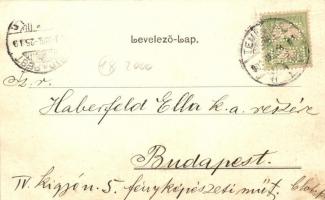 Levelező-Lap.
CB 2000
Haberfeld Ella k.a. részére
Budapest.
IV. kigyó u. 5. fényképészeti műt.